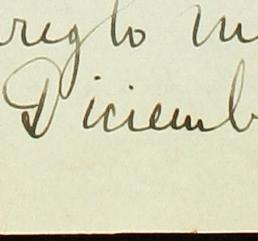 reglo m
Diciemb